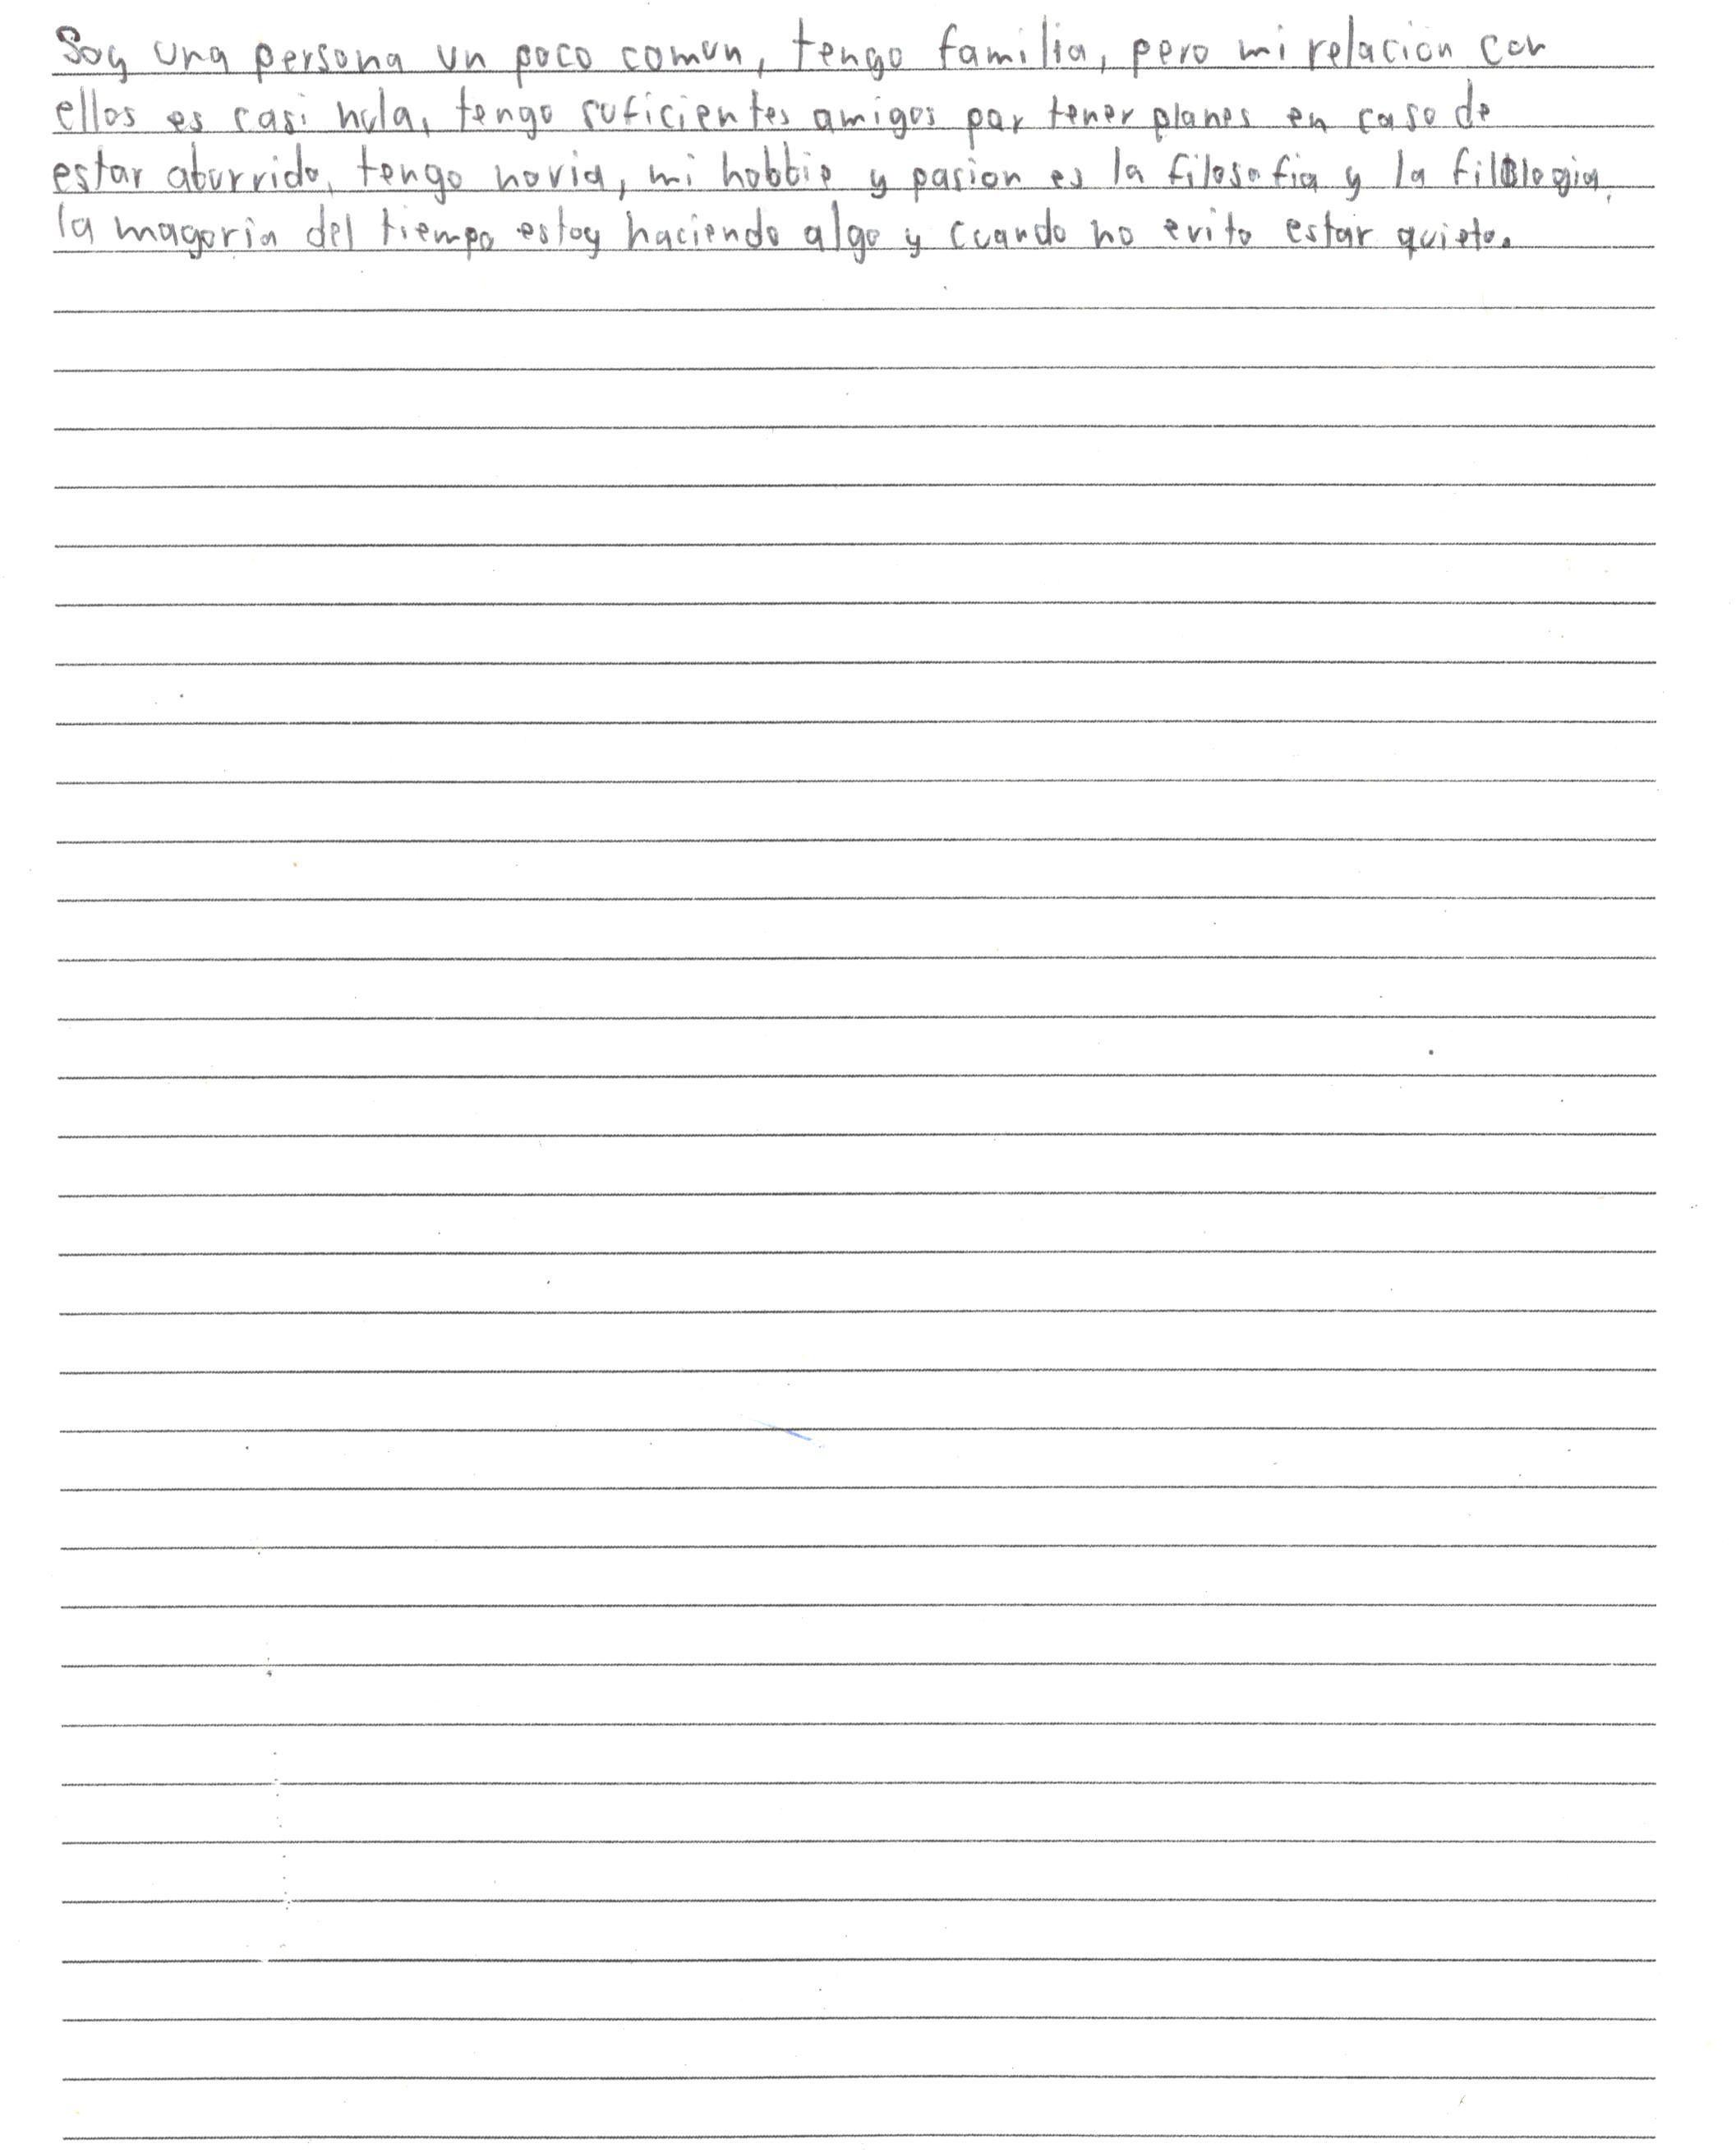 Soy una persona un poco comun, tengo familia, pero mi relacion con
ellos es casi nula, tengo suficientes amigos par tener planes en caso de
estar aburrido, tengo novia, mi hobbie y pasion es la filosofia y la filologia,
la mayoria del tiempo estoy haciendo algo y cuando no evito estar quieto.